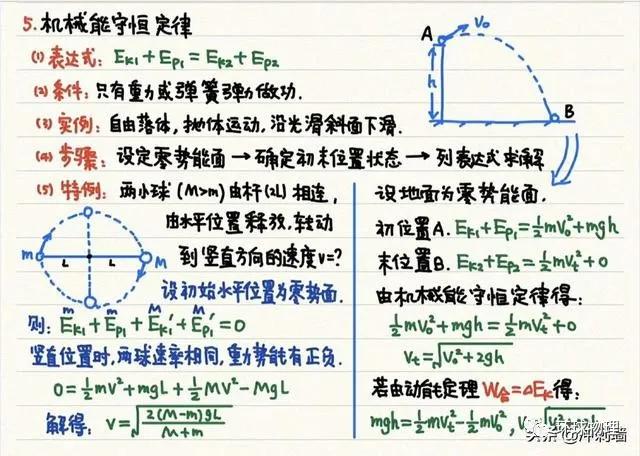 5.机械能守恒定律
(1) 表达式: Ek1+Ep1=Ek2+Ep2
(2) 条件: 只有重力或弹簧弹力做功.
(3) 实例: 自由落体, 抛体运动, 沿光滑斜面下滑.
(4) 步骤: 设定零势能面→确定初末位置状态→列表达式求解
A V0
h
B
(5) 特例: 两小球 (M>m) 由杆(2L) 相连,
由水平位置释放, 转动
到竖直方向的速度v=?
设初始水平位置为零势面.
m L L M
则: Ek1+Ep1+Ek1'+Ep1'=0
m m M M
竖直位置时, 两球速率相同, 重力势能有正负.
0=½mV²+mgL+½MV²-MgL
解得: V=√(2(M-m)gL/(M+m))
设地面为零势能面.
初位置A. Ek1+Ep1=½mV0²+mgh
末位置B. Ek2+Ep2=½mVt²+0
由机械能守恒定律得:
½mV0²+mgh=½mVt²+0
Vt=√(V0²+2gh)
若由动能定理 W合=△Ek得:
mgh=½mVt²-½mV0²,
头条@冲刺墙